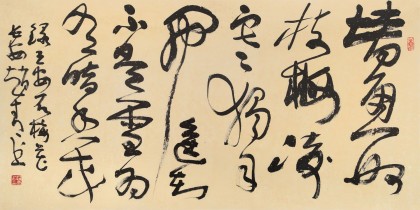 墙角数
枝梅凌
寒独自
开遥知
不是雪为
有暗香来
录王安石梅花
长安